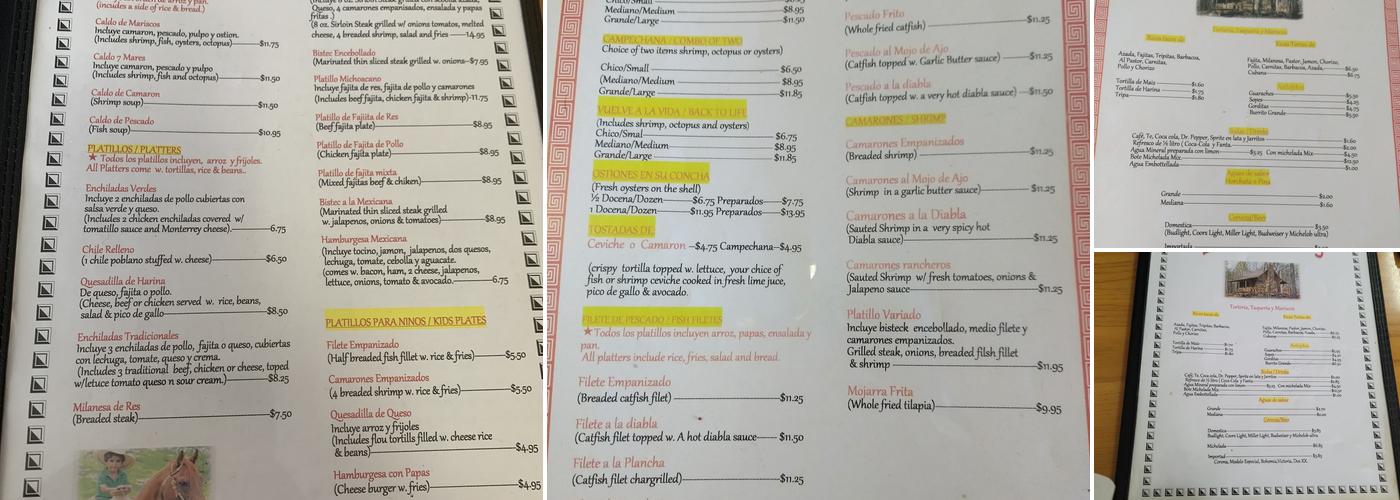 (incudes a side of rice & bread.)
Caldo de Mariscos
Incluye camaron, pescado, pulpo y ostion.
(Includes shrimp, fish, oysters, octopus) $11.75
Caldo 7 Mares
Incluye camaron, pescado y pulpo
(Includes shrimp, fish and octopus) $11.50
Caldo de Camaron
(Shrimp soup) $11.50
Caldo de Pescado
(Fish soup) $10.95
PLATILLOS / PLATTERS
★ Todos los platillos incluyen, arroz y frijoles.
All Platters come w. tortillas, rice & beans..
Enchiladas Verdes
Incluye 2 enchiladas de pollo cubiertas con
salsa verde y queso.
(Includes 2 chicken enchiladas covered w/
tomatillo sauce and Monterrey cheese). 6.75
Chile Relleno
(1 chile poblano stuffed w. cheese) $6.50
Quesadilla de Harina
De queso, fajita o pollo.
(Cheese, beef or chicken served w. rice, beans,
salad & pico de gallo $8.50
Enchiladas Tradicionales
Incluye 3 enchiladas de pollo, fajita o queso, cubiertas
con lechuga, tomate, queso y crema.
(Includes 3 traditional beef, chicken or cheese, toped
w/letuce tomato queso n sour cream.) $8.25
Milanesa de Res
(Breaded steak) $7.50
Queso, 4 camarones empanisados, ensalada y papas
fritas .)
(8 oz. Sirloin Steak grilled w/ onions tomatos, melted
cheese, 4 breaded shrimp, salad and fries 14.95
Bistec Encebollado
(Marinated thin sliced steak grilled w. onions $7.95
Platillo Michoacano
Incluye fajita de res, fajita de pollo y camarones
(Includes beef fajita, chicken fajita & shrimp) 11.75
Platillo de Fajita de Res
(Beef fajita plate) $8.95
Platillo de Fajita de Pollo
(Chicken fajita plate) $8.95
Platillo de fajita mixta
(Mixed fajitas beef & chiken) $8.95
Bistec a la Mexicana
(Marinated thin sliced steak grilled
w. jalapenos, onions & tomatoes) $8.95
Hamburgesa Mexicana
(Incluye tocino, jamon, jalapenos, dos quesos,
lechuga, tomate, cebolla y aguacate.
(comes w. bacon, ham, 2 cheese, jalapenos,
lettuce, onions, tomato & avocado. 6.75
PLATILLOS PARA NINOS / KIDS PLATES
Filete Empanizado
(Half breaded fish fillet w. rice & fries) $5.50
Camarones Empanizados
(4 breaded shrimp w. rice & fries) $5.50
Quesadilla de Queso
Incluye arroz y frijoles
(Includes flou tortills filled w. cheese rice
& beans) $4.95
Hamburgesa con Papas
(Cheese burger w. fries) $4.95
Mediano/Medium $8.95
Grande/Large $11.50
CAMPECHANA / COMBO OF TWO
Choice of two items shrimp, octopus or oysters)
Chico/Small $6.50
(Mediano/Medium $8.95
Grande/Large $11.85
VUELVE A LA VIDA / BACK TO LIFE
(Includes shrimp, octopus and oysters)
Chico/Smal $6.75
Mediano/Medium $8.95
Grande/Large $11.85
OSTIONES EN SU CONCHA
(Fresh oysters on the shell)
½ Docena/Dozen $6.75 Preparados $7.75
1 Docena/Dozen $11.95 Preparados $13.95
TOSTADAS DE
Ceviche o Camaron $4.75 Campechana $4.95
(crispy tortilla topped w. lettuce, your chice of
fish or shrimp ceviche cooked in fresh lime juce,
pico de gallo & avocado.
FILETE DE PESCADO / FISH FILETES
★Todos los platillos incluyen arroz, papas, ensalada y
pan.
All platters include rice, fries, salad and bread.
Filete Empanizado
(Breaded catfish filet) $11.25
Filete a la diabla
(Catfish filet topped w. A hot diabla sauce $11.50
Filete a la Plancha
(Catfish filet chargrilled) $11.25
Pescado Frito
(Whole fried catfish) $11.25
Pescado al Mojo de Ajo
(Catfish topped w. Garlic Butter sauce) $11.25
Pescado a la diabla
(Catfish topped w. a very hot diabla sauce) $11.50
CAMARONES / SHRIMP
Camarones Empanizados
(Breaded shrimp) $11.25
Camarones al Mojo de Ajo
(Shrimp in a garlic butter sauce) $11.25
Camarones a la Diabla
(Sauted Shrimp in a very spicy hot
Diabla sauce) $11.25
Camarones rancheros
(Sauted Shrimp w/ fresh tomatoes, onions &
Jalapeno sauce $11.25
Platillo Variado
Incluye bisteck encebollado, medio filete y
camarones empanizados.
Grilled steak, onions, breaded filsh fillet
& shrimp $11.95
Mojarra Frita
(Whole fried tilapia) $9.95
Tortilla de Mais $1.60
Tortilla de Harina $1.75
Tripa $1.80
Guaraches
Sopes
Gorditas
Burrito Grande
Café, Te, Coca cola, Dr. Pepper, Sprite en lata y Jarritos $1.60
Refresco de ½ litro ( Coca-Cola y Fanta
Agua Mineral preparada con limon $3.25 Con michelada Mix
Bote Michelada Mix
Agua Embottellada
Aguas de sabor
Horchata o Pina
Grande $2.00
Mediana $1.60
Cerveza/Beer
Domestica $3.50
(Budlight, Coors Light, Miller Light, Budwiser y Michelob ultra)
Tortas, Taqueria y Mariscos
Aguas de sabor
Grande
Mediana
Cerveza/Beer
Domestica
Budlight, Coors Light, Miller Light, Budwiser y Michelob ultra
Michelada
Imported
Corona, Modelo Especial, Bohemia, Victoria, Dos XX.